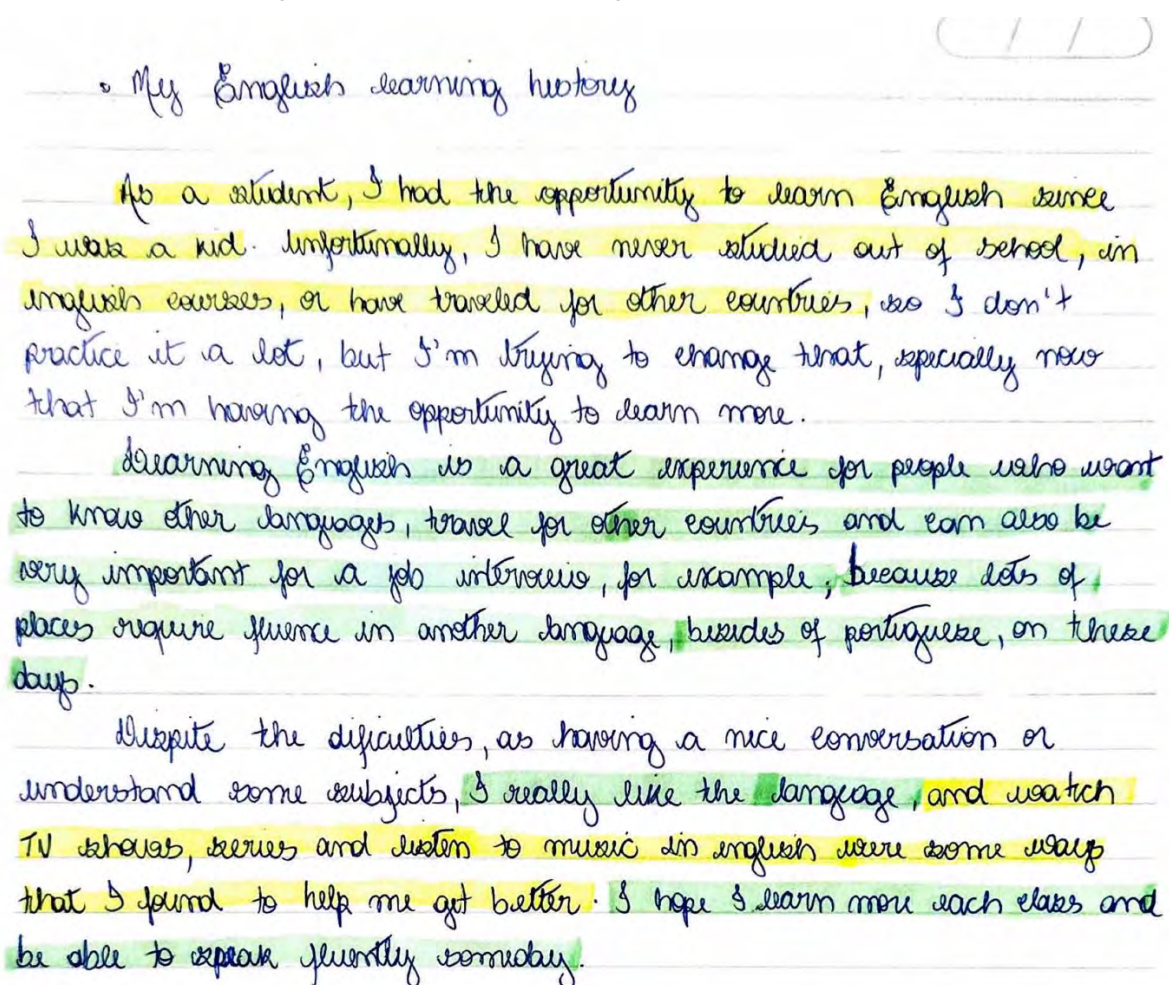 • My English learning history
As a student, I had the opportunity to learn English since
I was a kid. Unfortunally, I have never studied out of school, in
english courses, or have traveled for other countries, so I don't
practice it a lot, but I'm trying to change that, specially now
that I'm having the opportunity to learn more.
Learning English is a great experience for people who want
to know other languages, travel for other countries and can also be
very important for a job interview, for example, because lots of
places require fluence in another language, besides of portuguese, on these
days.
Despite the dificulties, as having a nice conversation or
understand some subjects, I really like the language, and watch
TV shows, series and listen to music in english were some ways
that I found to help me get better. I hope I learn more each class and
be able to speak fluently someday.